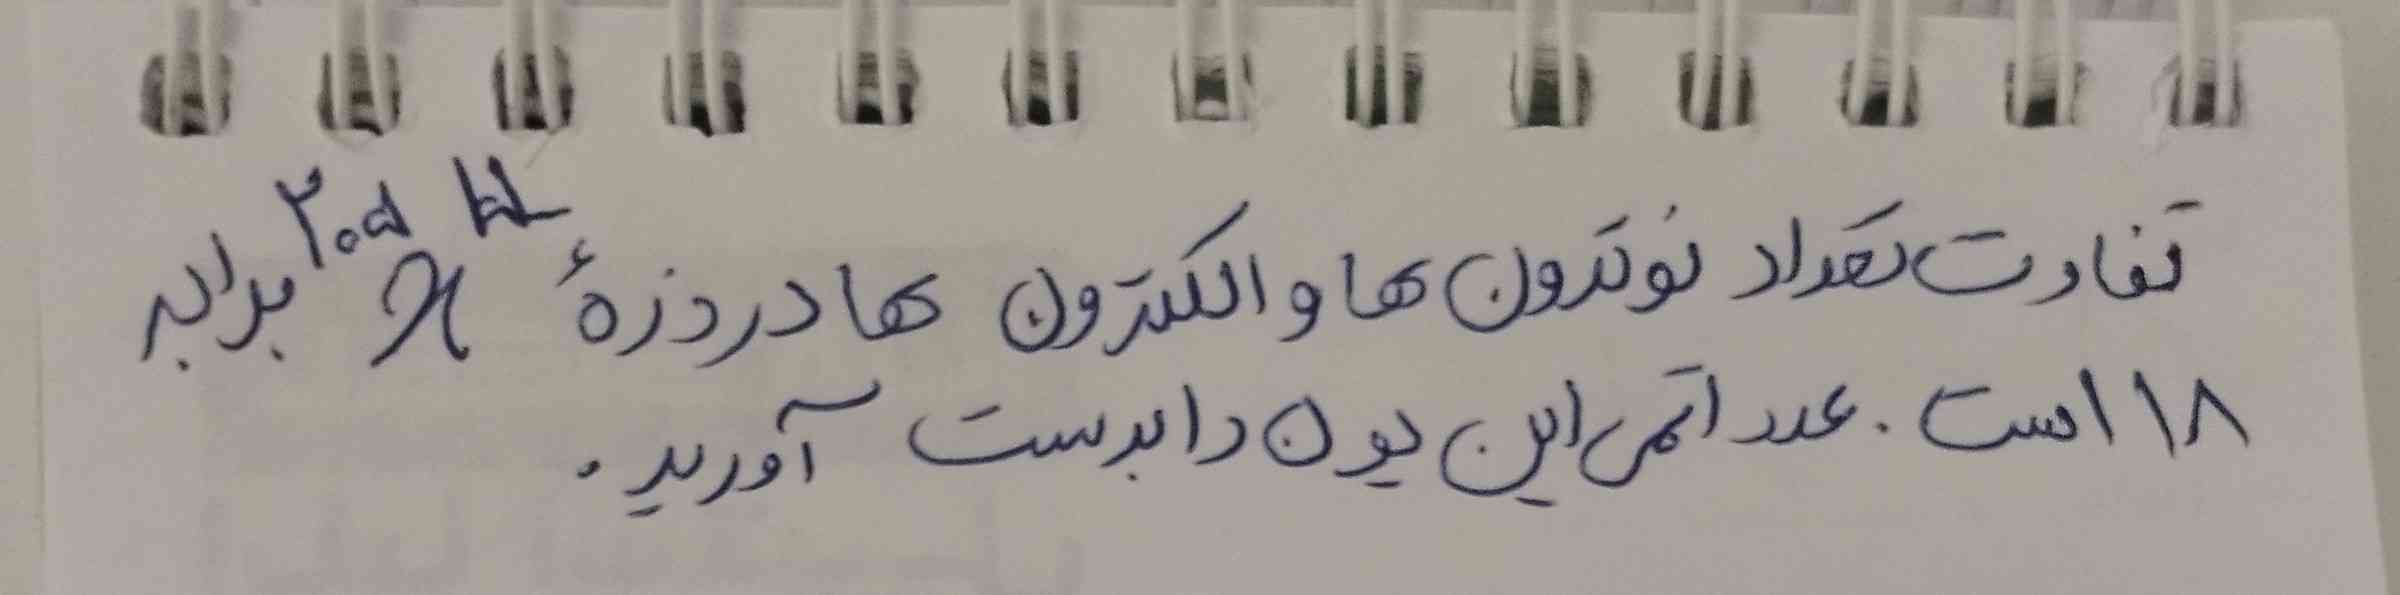 تفاوت تعداد نوترون ها و الکترون ها در ذرهٔ ۷۵ x ۳۰۵ برابر
۱۸ است. عدد اتمی این یون را بدست آورید.